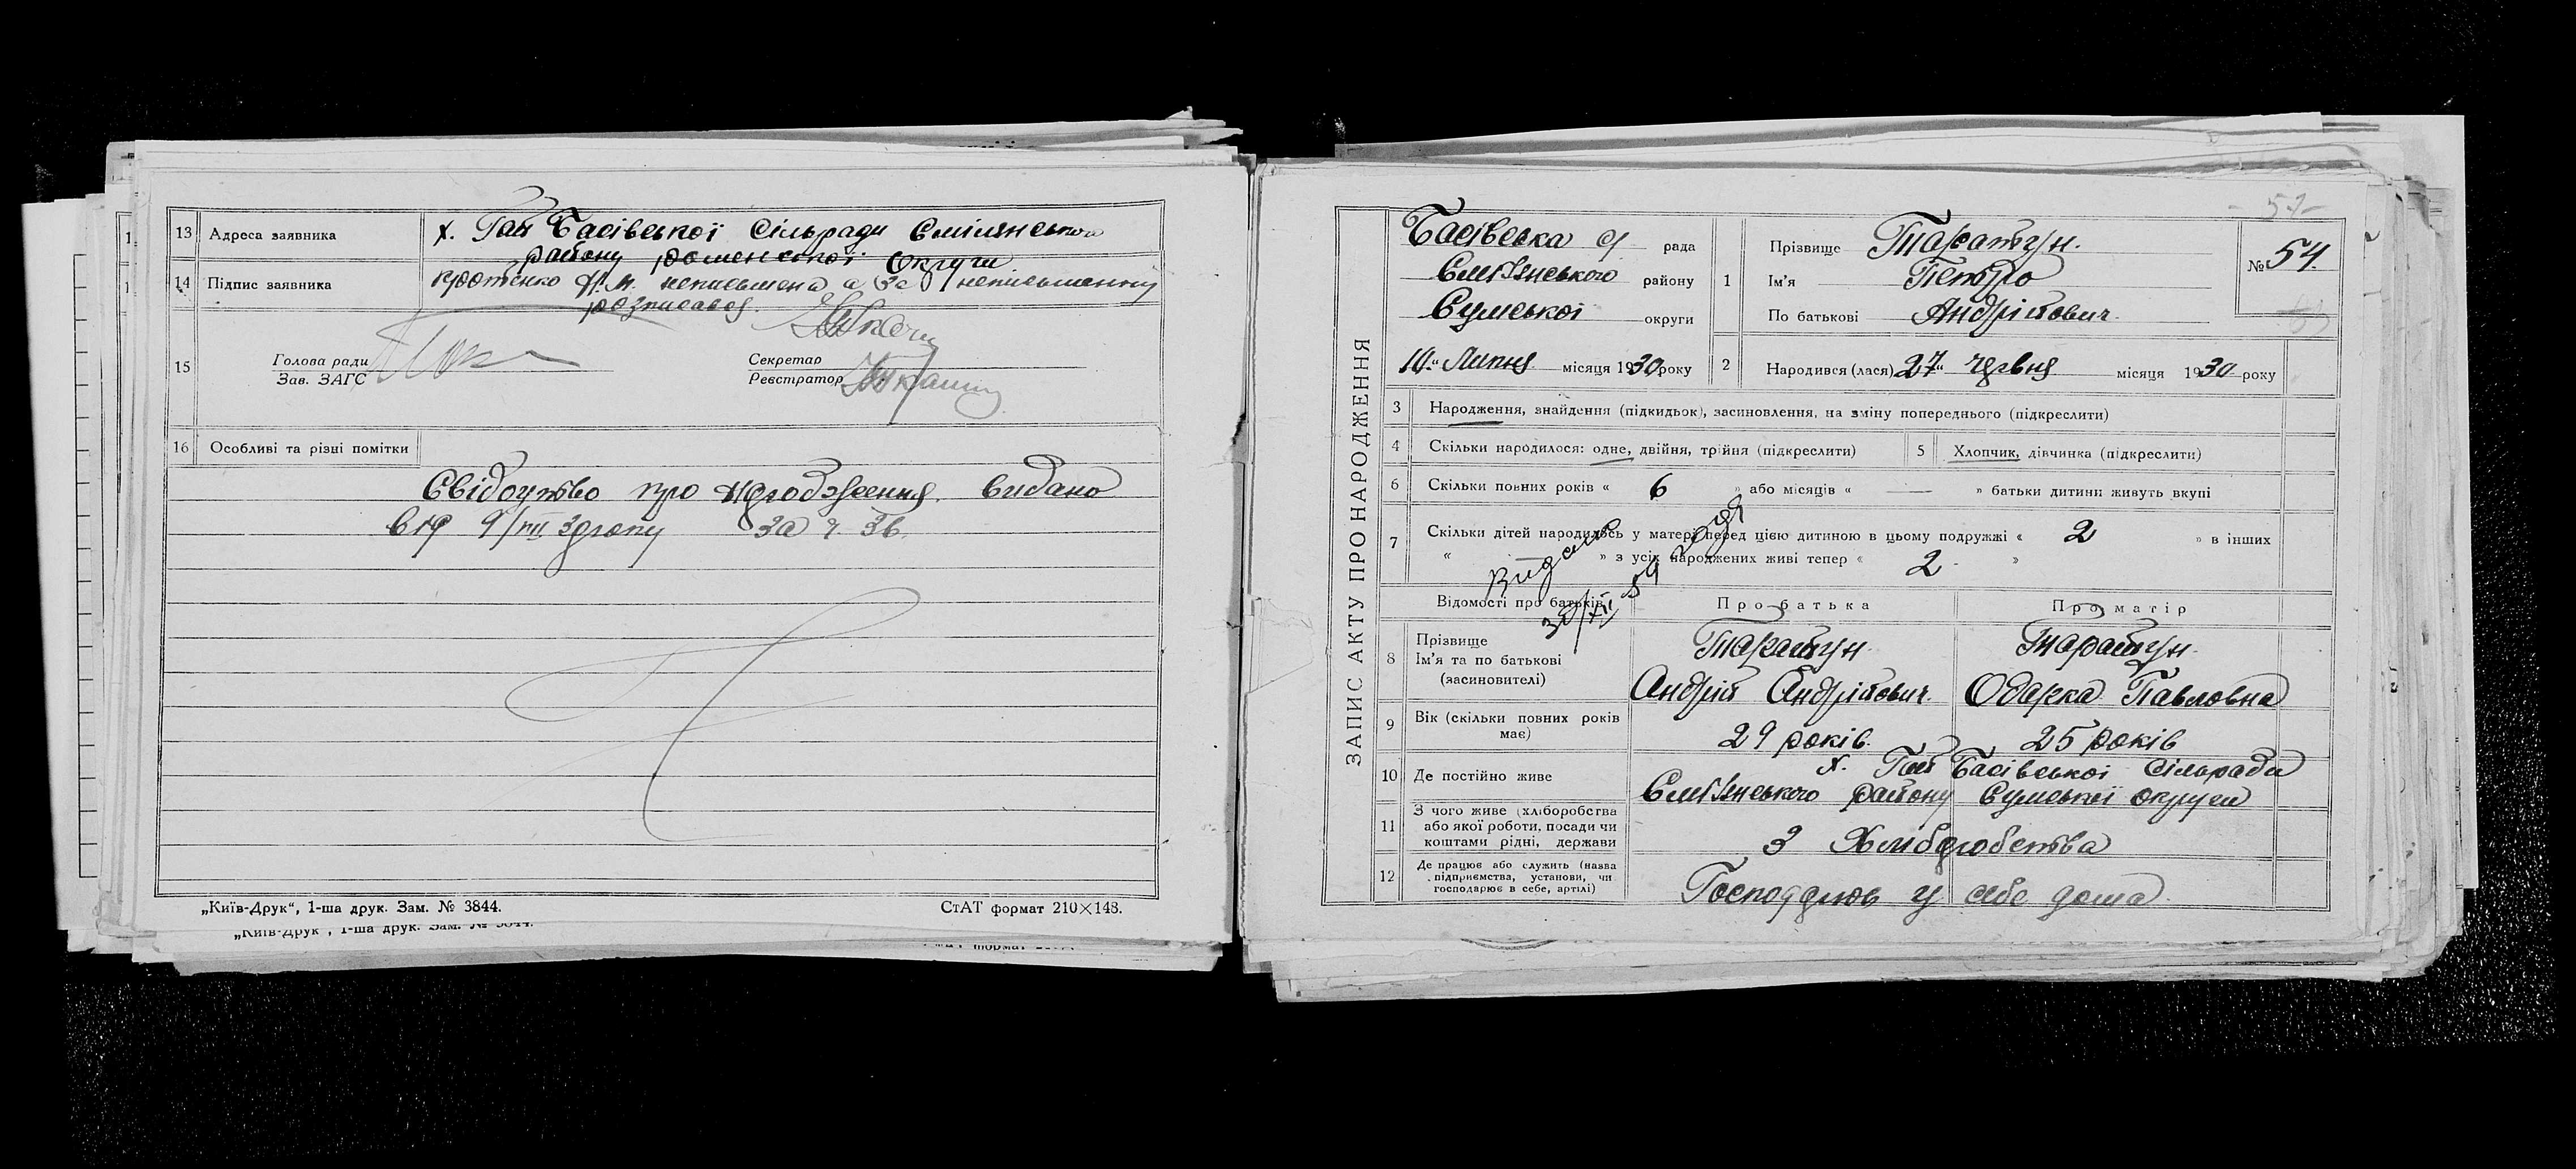 13 Адреса заявника х. Гай Басівської Сільради Смілянського
району Роменської Округи
14 Підпис заявника неписьмена а за неписьменну
розписався
15 Голова ради
Зав. ЗАГС
Секретар
Реєстратор
16 Особливі та різні помітки
Свідоцтво про народження видано
за ч. 36.
„Київ-Друк“, 1-ша друк. Зам. № 3844.
СтАТ формат 210×148.
ЗАПИС АКТУ ПРО НАРОДЖЕННЯ
Басівська с/ рада
району
Сумської округи
10 „ Липня місяця 1930 року
1 Прізвище Таратун.
Ім'я Петро
По батькові Андрійович
№ 54.
2 Народився (лася) 27 „ червня місяця 1930 року
3 Народження, знайдення (підкидьок), засиновлення, на зміну попереднього (підкреслити)
4 Скільки народилося: одне, двійня, трійня (підкреслити)
5 Хлопчик, дівчинка (підкреслити)
6 Скільки повних років « 6 » або місяців « — » батьки дитини живуть вкупі
7 Скільки дітей народилось у матері перед цією дитиною в цьому подружжі « 2 » в інших
« » з усіх народжених живі тепер « 2 »
30/XII 59 года
Відомості про батьків Про батька Про матір
8 Прізвище Ім'я та по батькові (засиновителі)
Таратун Таратун
Андрій Андрійович Одарка Павловна
9 Вік (скільки повних років має) 29 років. 25 років
10 Де постійно живе х. Гай Басівської Сільради
району Сумської округи
11 З чого живе (хліборобства або якої роботи, посади чи коштами рідні, держави
З Хліборобства
12 Де працює або служить (назва підприємства, установи, чи господарює в себе, артілі)
у себе дома